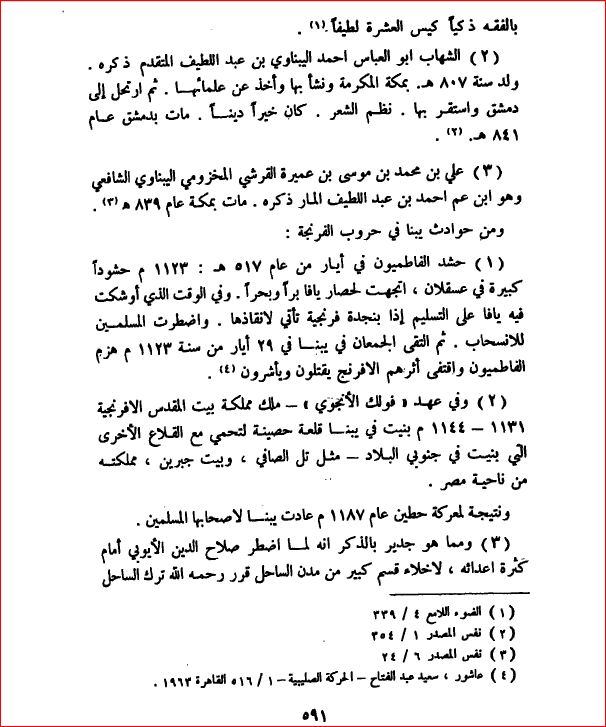 بالفقه ذكياً كيس العشرة لطيفاً . (١) .
(٢) الشهاب ابو العباس احمد اليبناوي بن عبد اللطيف المتقدم ذكره .
ولد سنة ٨٠٧ هـ. بمكة المكرمة ونشأ بها وأخذ عن علمائها . ثم ارتحل إلى
دمشق واستقر بها . نظم الشعر . كان خيراً ديناً . مات بدمشق عام
٨٤١ هـ. (٢) .
(٣) علي بن محمد بن موسى بن عميرة القرشي المخزومي اليبناوي الشافعي
وهو ابن عم احمد بن عبد اللطيف المار ذكره . مات بمكة عام ٨٣٩ هـ (٣) .
ومن حوادث يبنا في حروب الفرنجة :
(١) حشد الفاطميون في أيار من عام ٥١٧ هـ : ١١٢٣ م حشوداً
كبيرة في عسقلان ، اتجهت لحصار يافا براً وبحراً . وفي الوقت الذي أوشكت
فيه يافا على التسليم إذا بنجدة فرنجية تأتي لانقاذها . واضطرت المسلمين
للانسحاب . ثم التقى الجمعان في يبنا في ٢٩ أيار من سنة ١١٢٣ م هزم
الفاطميون واقتفى أثرهم الافرنج يقتلون ويأشرون (٤) .
(٢) وفي عهد « فولك الأنجوي » – ملك مملكة بيت المقدس الافرنجية
١١٣١ – ١١٤٤ م بنيت في يبنا قلعة حصينة لتحمي مع القلاع الأخرى
التي بنيت في جنوبي البلاد – مثل تل الصافي ، وبيت جبرين ، مملكته
من ناحية مصر .
ونتيجة لمعركة حطين عام ١١٨٧ م عادت يبنا لاصحابها المسلمين .
(٣) ومما هو جدير بالذكر انه لما اضطر صلاح الدين الأيوبي أمام
كثرة اعدائه ، لاخلاء قسم كبير من مدن الساحل قرر رحمه الله ترك الساحل
(١) الضوء اللامع ٤ / ٣٣٩
(٢) نفس المصدر ١ / ٣٥٤
(٣) نفس المصدر ٦ / ٢٤
(٤) عاشور ، سعيد عبد الفتاح – الحركة الصليبية – ١ / ٥١٦ القاهرة ١٩٦٣ .
٥٩١